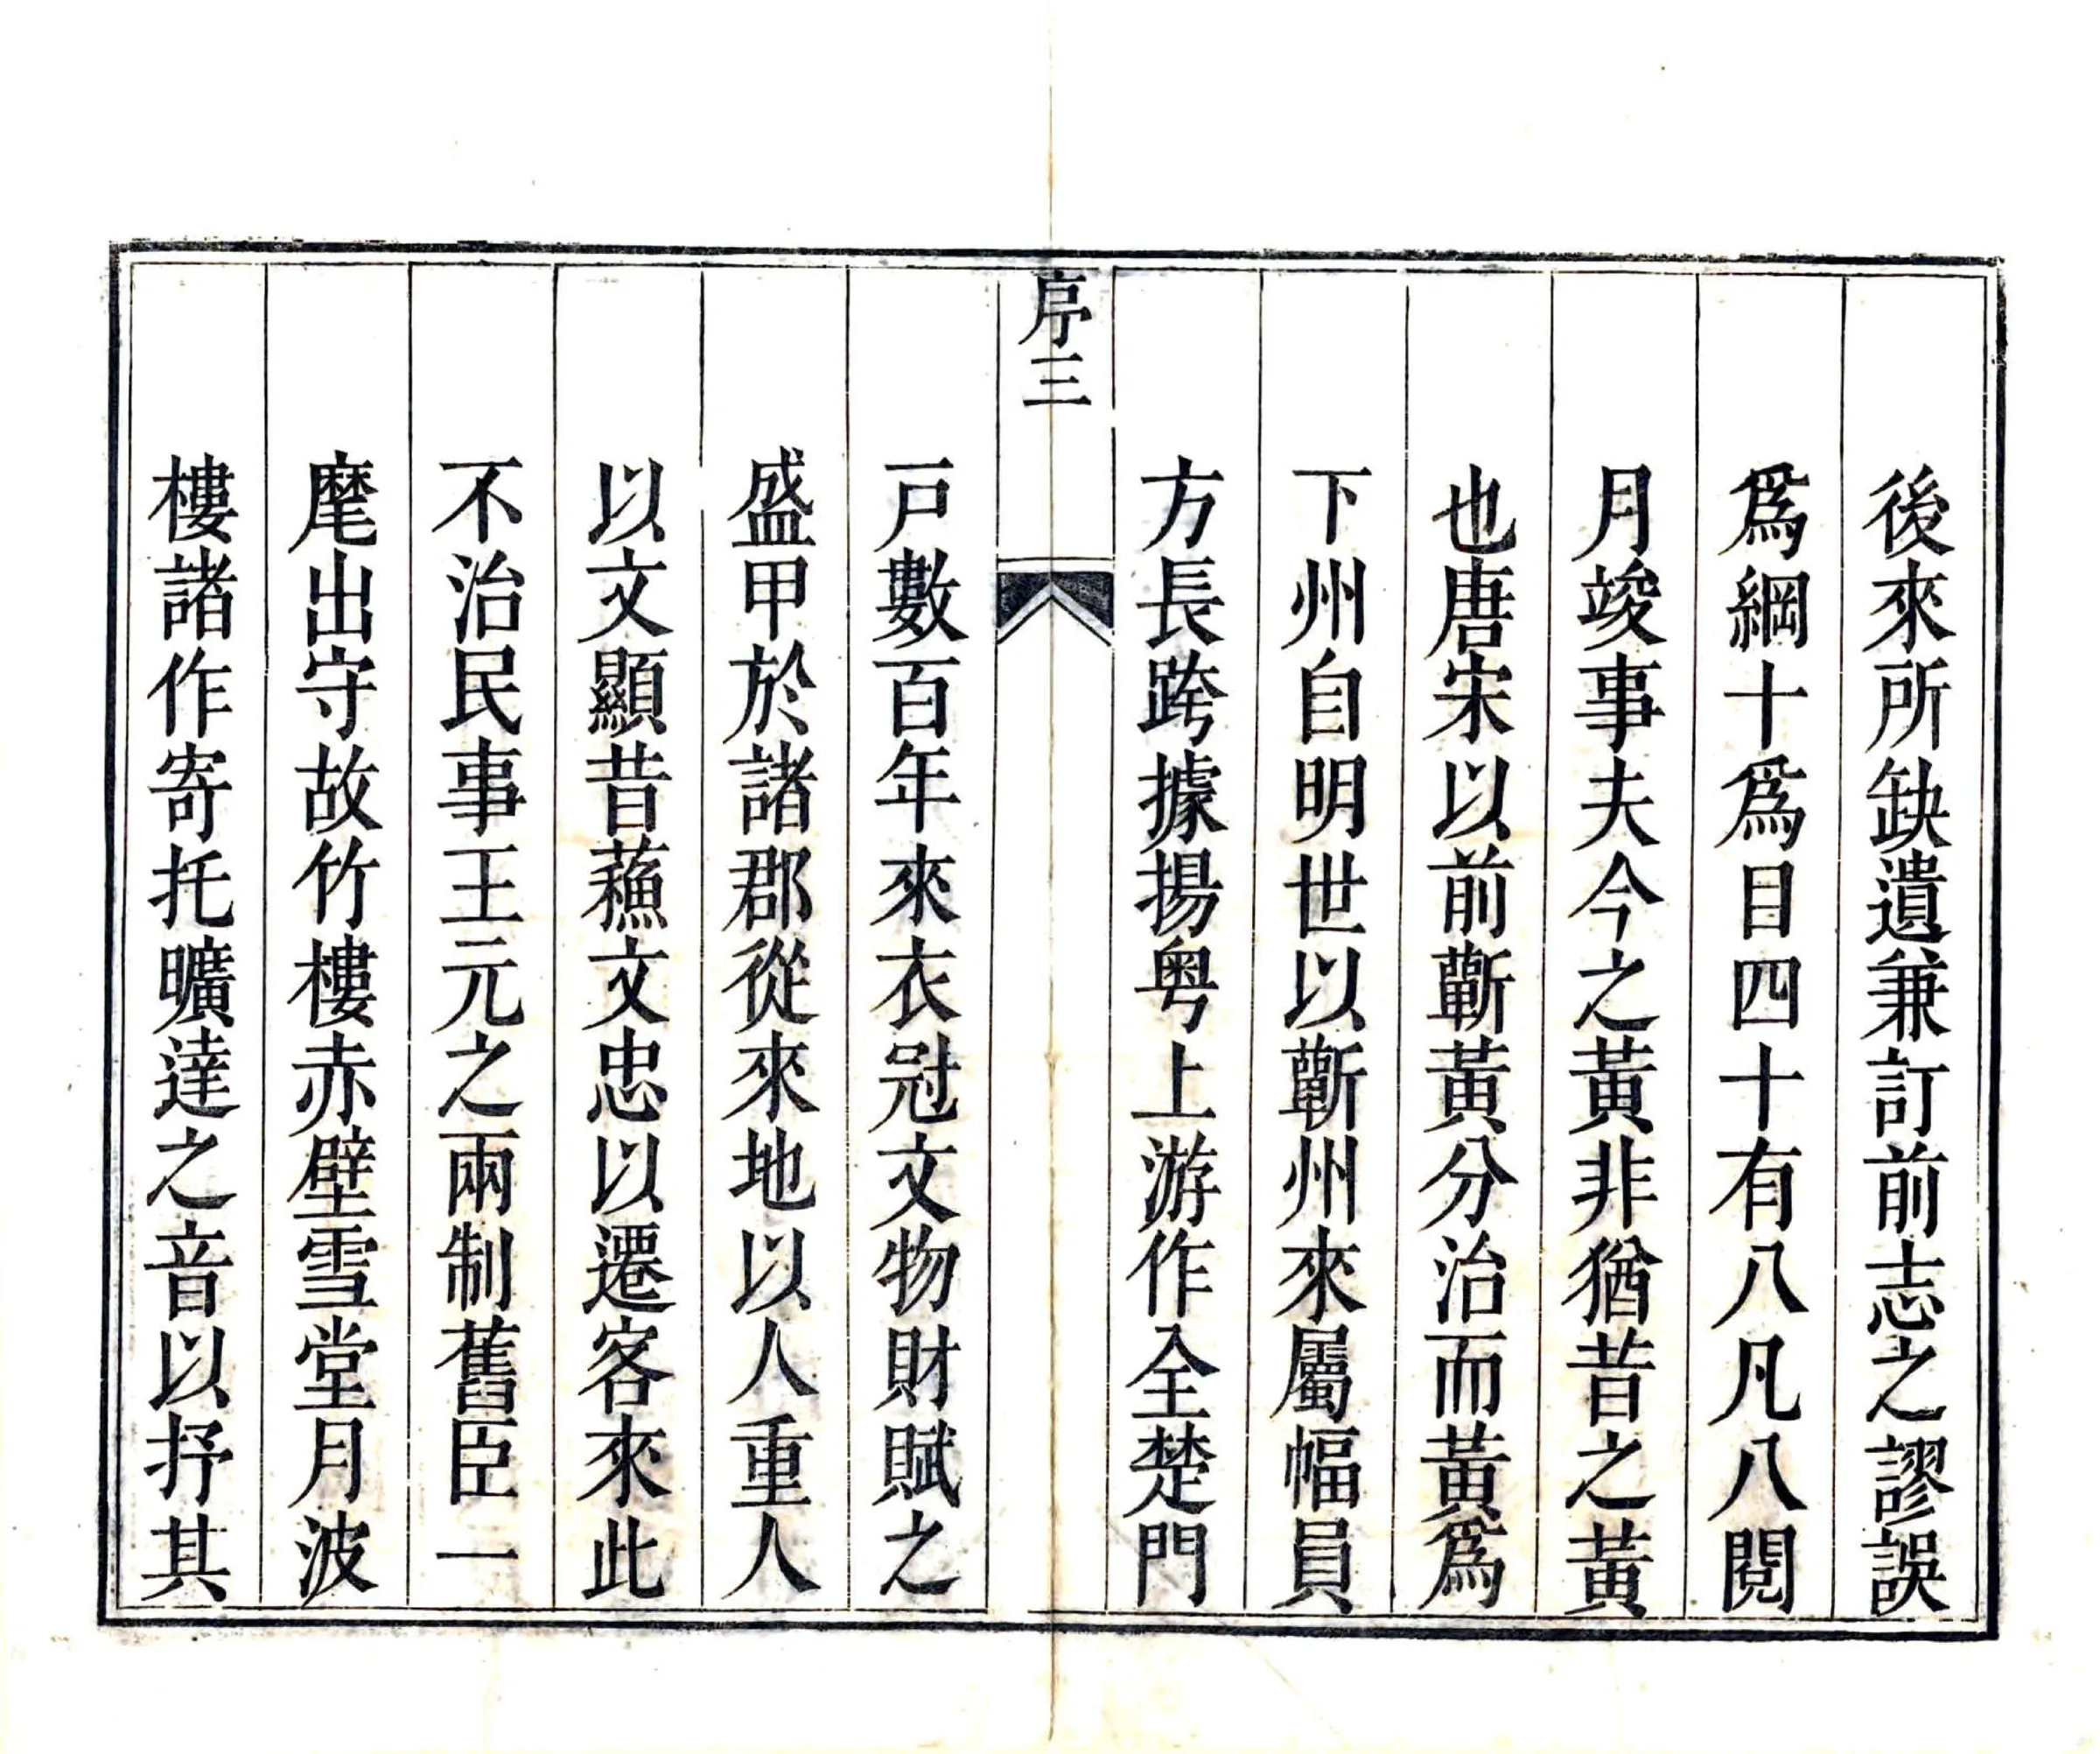 後來所缺遺兼訂前志之謬誤
爲綱十爲目四十有八凡八閱
月竣事夫今之黃非猶昔之黃
也唐宋以前蘄黃分治而黃爲
下州自明世以蘄州來屬幅員
方長跨據揚粤上游作全楚門
序三
戸數百年來衣冠文物財賦之
盛甲於諸郡從來地以人重人
以文顯昔蘓文忠以遷客來此
不治民事王元之兩制舊臣一
麾出守故竹樓赤壁雪堂月波
樓諸作寄托曠達之音以抒其